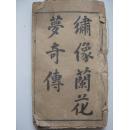 繡像蘭花
夢奇傳